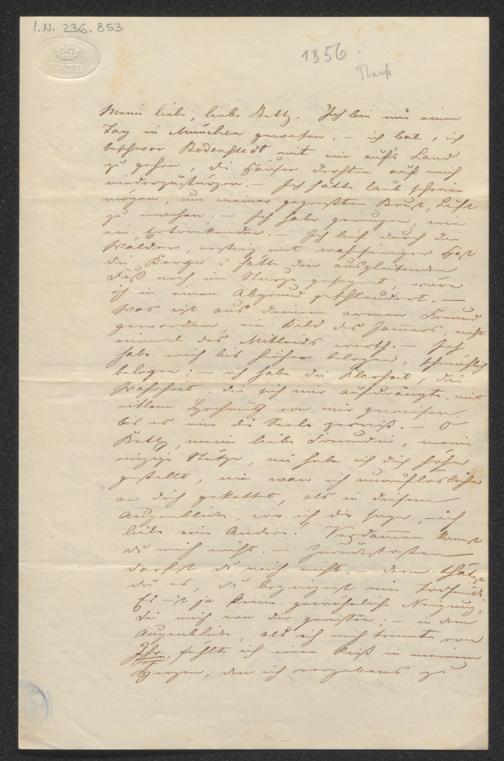 I.N. 236.853
BATH
1856.
Mein liebe, liebe Betty. Ich bin nur einen
Tag in München gewesen. – ich bat, ich
beschwor Bodenstedt mit mir aufs Land
zu gehen, die Häuser drohten auf mich
niederzustürzen. – Ich hätte laut schreien
mögen, um meiner gepreßten Brust, Luft
zu machen. – Ich habe gerungen, wie
ein Ertrinkender. – Ich lief durch die
Wälder, erstieg mit wahnsinniger Hast
die Berge u hätte den ausgleitenden
Fuß noch im Sturze gesegnet, wäre
ich in einen Abgrund geschleudert. –
Was ist aus deinem armen Freund
geworden, ein Bild des Jammers, nicht
einmal des Mitleids werth. – Ich
habe mich bis hieher belogen, schändlich
belogen; – ich habe die Klarheit, die
Wahrheit, die sich mir aufdrängte mit
eitlem von mir gewiesen,
bis es mir die Seele zerriß. – O
Betty, meine liebe Freundin, meine
einzige Stütze, nie habe ich dich höher
gestellt, nie war ich unauflöslicher
an dich gekettet, als in diesem
Augenblicke, wo ich dir sage, – ich
liebe eine Andere. Verdammen kannst
du mich nicht. –
darfst du mich nicht, denn thätst
du es, du begingest eine Todsünde.
Es ist ja keine gewöhnliche Neigung,
die mich von dir gerissen; – in dem
Augenblicke, als ich mich trennte von
Ihr, fühlte ich einen Riß in meinem
Herzen, den ich vergebens zu